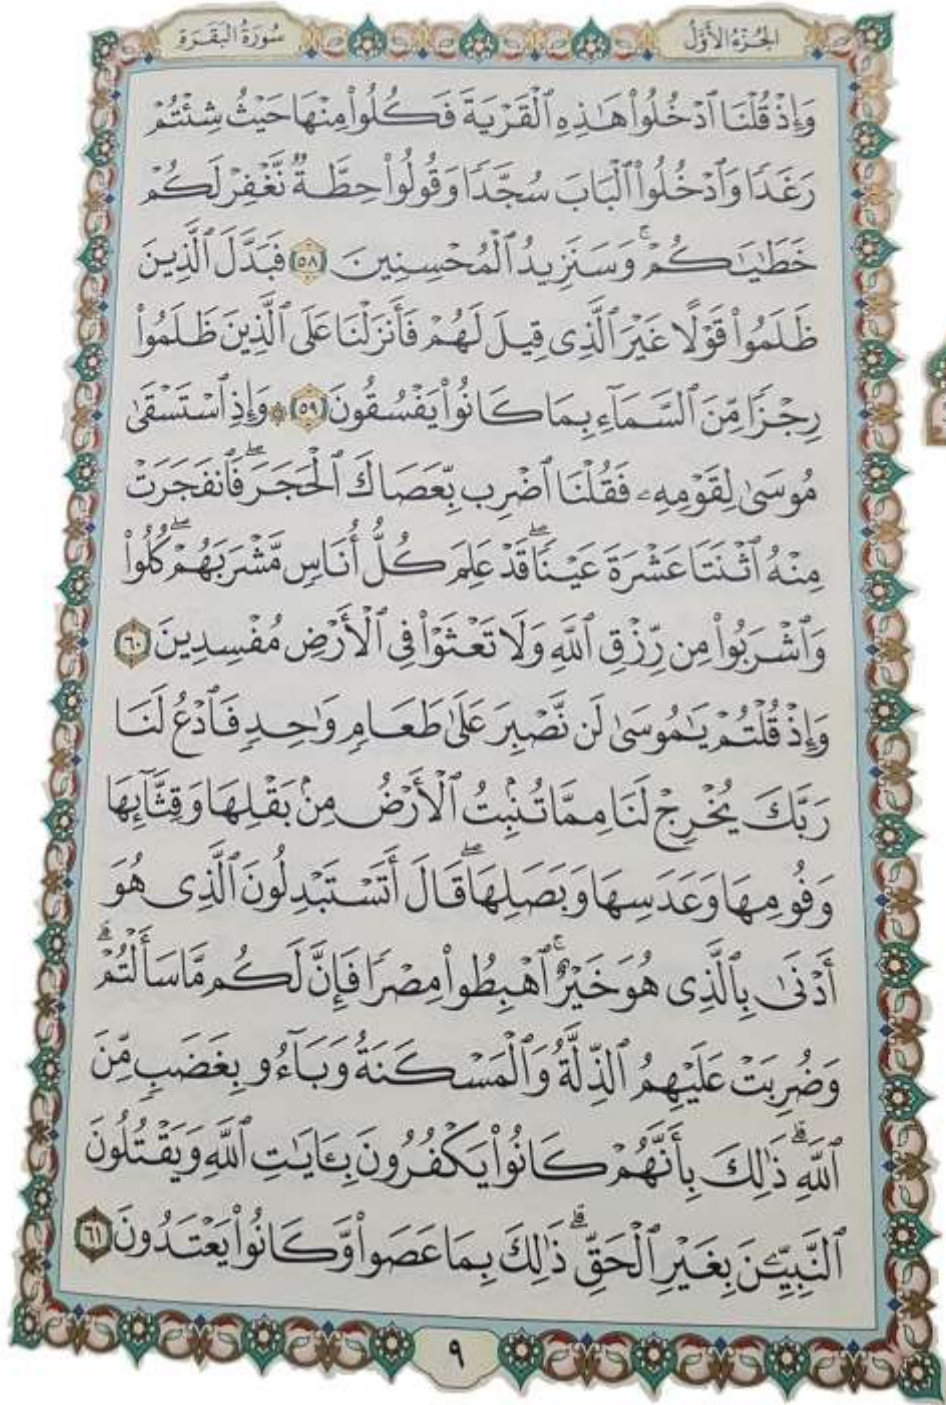 الجُزْءُ الأَوَّلُ
سُورَةُ البَقَرَةِ
وَإِذْ قُلْنَا ٱدْخُلُوا۟ هَـٰذِهِ ٱلْقَرْيَةَ فَكُلُوا۟ مِنْهَا حَيْثُ شِئْتُمْ
رَغَدًا وَٱدْخُلُوا۟ ٱلْبَابَ سُجَّدًا وَقُولُوا۟ حِطَّةٌ نَّغْفِرْ لَكُمْ
خَطَـٰيَـٰكُمْ ۚ وَسَنَزِيدُ ٱلْمُحْسِنِينَ ﴿٥٨﴾ فَبَدَّلَ ٱلَّذِينَ
ظَلَمُوا۟ قَوْلًا غَيْرَ ٱلَّذِى قِيلَ لَهُمْ فَأَنزَلْنَا عَلَى ٱلَّذِينَ ظَلَمُوا۟
رِجْزًا مِّنَ ٱلسَّمَآءِ بِمَا كَانُوا۟ يَفْسُقُونَ ﴿٥٩﴾ ۞ وَإِذِ ٱسْتَسْقَىٰ
مُوسَىٰ لِقَوْمِهِۦ فَقُلْنَا ٱضْرِب بِّعَصَاكَ ٱلْحَجَرَ ۖ فَٱنفَجَرَتْ
مِنْهُ ٱثْنَتَا عَشْرَةَ عَيْنًا ۖ قَدْ عَلِمَ كُلُّ أُنَاسٍ مَّشْرَبَهُمْ ۖ كُلُوا۟
وَٱشْرَبُوا۟ مِن رِّزْقِ ٱللَّهِ وَلَا تَعْثَوْا۟ فِى ٱلْأَرْضِ مُفْسِدِينَ ﴿٦٠﴾
وَإِذْ قُلْتُمْ يَـٰمُوسَىٰ لَن نَّصْبِرَ عَلَىٰ طَعَامٍ وَٰحِدٍ فَٱدْعُ لَنَا
رَبَّكَ يُخْرِجْ لَنَا مِمَّا تُنۢبِتُ ٱلْأَرْضُ مِنۢ بَقْلِهَا وَقِثَّآئِهَا
وَفُومِهَا وَعَدَسِهَا وَبَصَلِهَا ۖ قَالَ أَتَسْتَبْدِلُونَ ٱلَّذِى هُوَ
أَدْنَىٰ بِٱلَّذِى هُوَ خَيْرٌ ۚ ٱهْبِطُوا۟ مِصْرًا فَإِنَّ لَكُم مَّا سَأَلْتُمْ ۗ
وَضُرِبَتْ عَلَيْهِمُ ٱلذِّلَّةُ وَٱلْمَسْكَنَةُ وَبَآءُو بِغَضَبٍ مِّنَ
ٱللَّهِ ۗ ذَٰلِكَ بِأَنَّهُمْ كَانُوا۟ يَكْفُرُونَ بِـَٔايَـٰتِ ٱللَّهِ وَيَقْتُلُونَ
ٱلنَّبِيِّـۧنَ بِغَيْرِ ٱلْحَقِّ ۗ ذَٰلِكَ بِمَا عَصَوا۟ وَّكَانُوا۟ يَعْتَدُونَ ﴿٦١﴾
٩